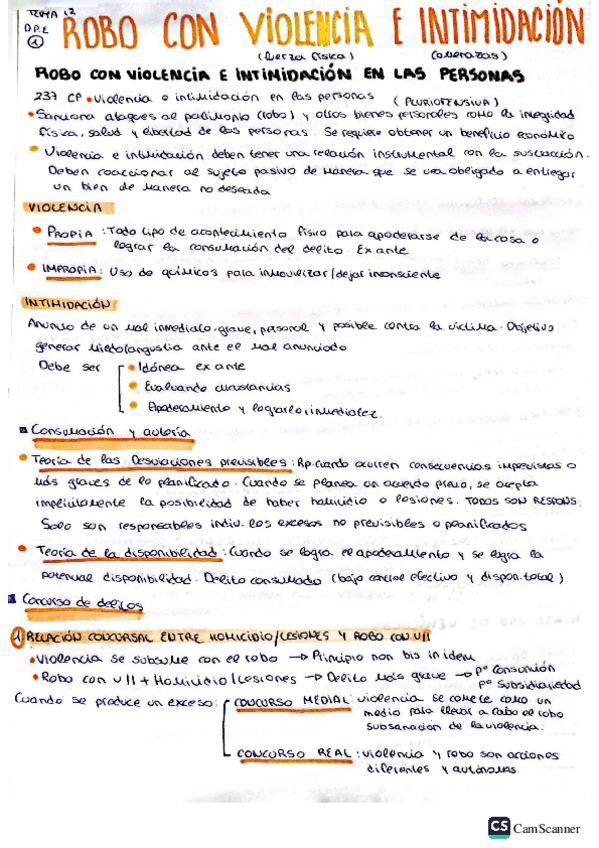 TEMA 12
D.P.E
① ROBO CON VIOLENCIA E INTIMIDACIÓN
(fuerza física) (amenazas)
ROBO CON VIOLENCIA E INTIMIDACIÓN EN LAS PERSONAS
237 CP • Violencia o intimidación en las personas (PLURIOFENSIVA)
• Sanciona ataques al patrimonio (robo) y otros bienes personales como la integridad
física, salud y libertad de las personas. Se requiere obtener un beneficio económico
• Violencia e intimidación deben tener una relación instrumental con la sustracción.
Deben coaccionar al sujeto pasivo de manera que se vea obligado a entregar
un bien de manera no deseada
VIOLENCIA
• PROPIA: Todo tipo de acontecimiento físico para apoderarse de la cosa o
lograr la consumación del delito. Ex ante
• IMPROPIA: Uso de químicos para inmovilizar/dejar inconsciente
INTIMIDACIÓN
Anuncio de un mal inmediato, grave, personal y posible contra la víctima. Objetivo
generar miedo/angustia ante el mal anunciado
Debe ser • Idónea ex ante
• Evaluando circunstancias
• Apoderamiento y lograrlo, inmediatez.
Consumación y autoría
• Teoría de las Desviaciones previsibles: Rp cuando ocurren consecuencias imprevistas o
más graves de lo planificado. Cuando se planea un acuerdo previo, se acepta
implícitamente la posibilidad de haber homicidio o lesiones. TODOS SON RESPONS.
Solo son responsables indiv. los excesos no previsibles o planificados
• Teoría de la disponibilidad: Cuando se logra el apoderamiento y se logra la
potencial disponibilidad. Delito consumado (bajo control efectivo y dispon. total)
Concurso de delitos
① RELACIÓN CONCURSAL ENTRE HOMICIDIO/LESIONES Y ROBO CON V/I
• Violencia se subsume con el robo → Principio non bis in idem
• Robo con V/I + Homicidio/Lesiones → Delito más grave → Pº Consunción
Pº Subsidiariedad
Cuando se produce un exceso: CONCURSO MEDIAL: violencia se comete como un
medio para llevar a cabo el robo
subsanación de la violencia.
CONCURSO REAL: violencia y robo son acciones
diferentes y autónomas.
CS CamScanner